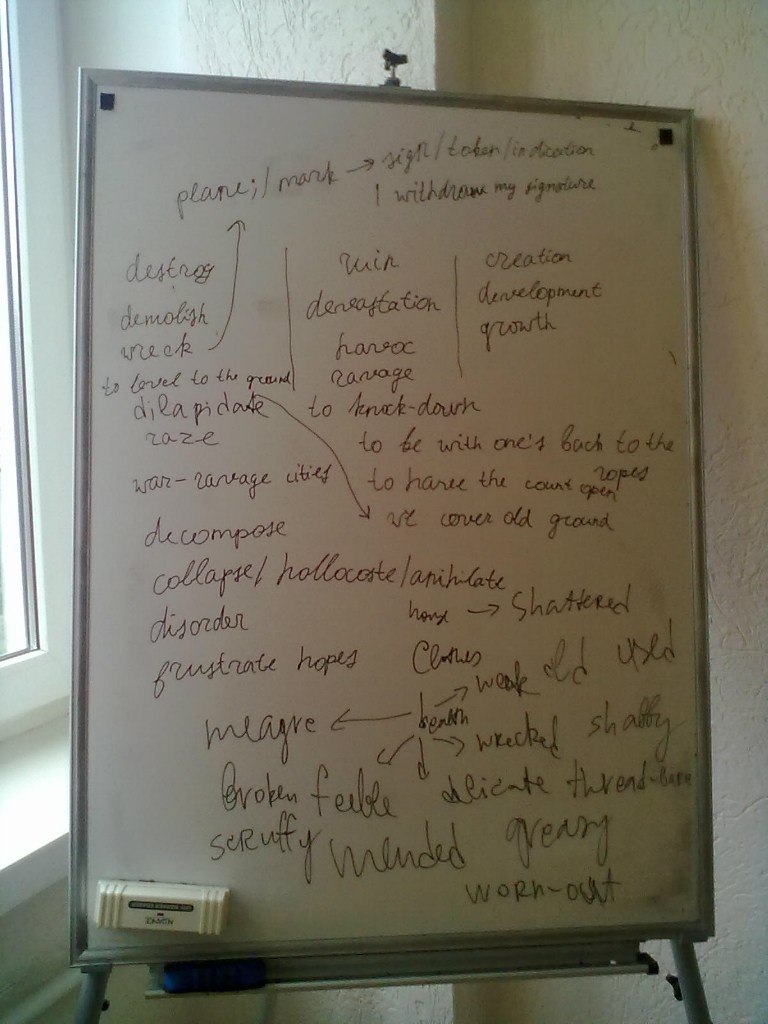 plane;/ mark → sign/token/indication
I withdraw my signature
destroy ruin creation
demolish devastation development
wreck havoc growth
to level to the ground ravage
dilapidate to knock-down
raze to be with one's back to the ropes
war-ravage cities to have the court open
decompose cover old ground
collapse/ hollocoste/anihilate
disorder house → shattered
frustrate hopes Clothes
weak old used
meagre ← health
wrecked shabby
broken feeble delicate thread-bare
scruffy mended greasy
worn-out